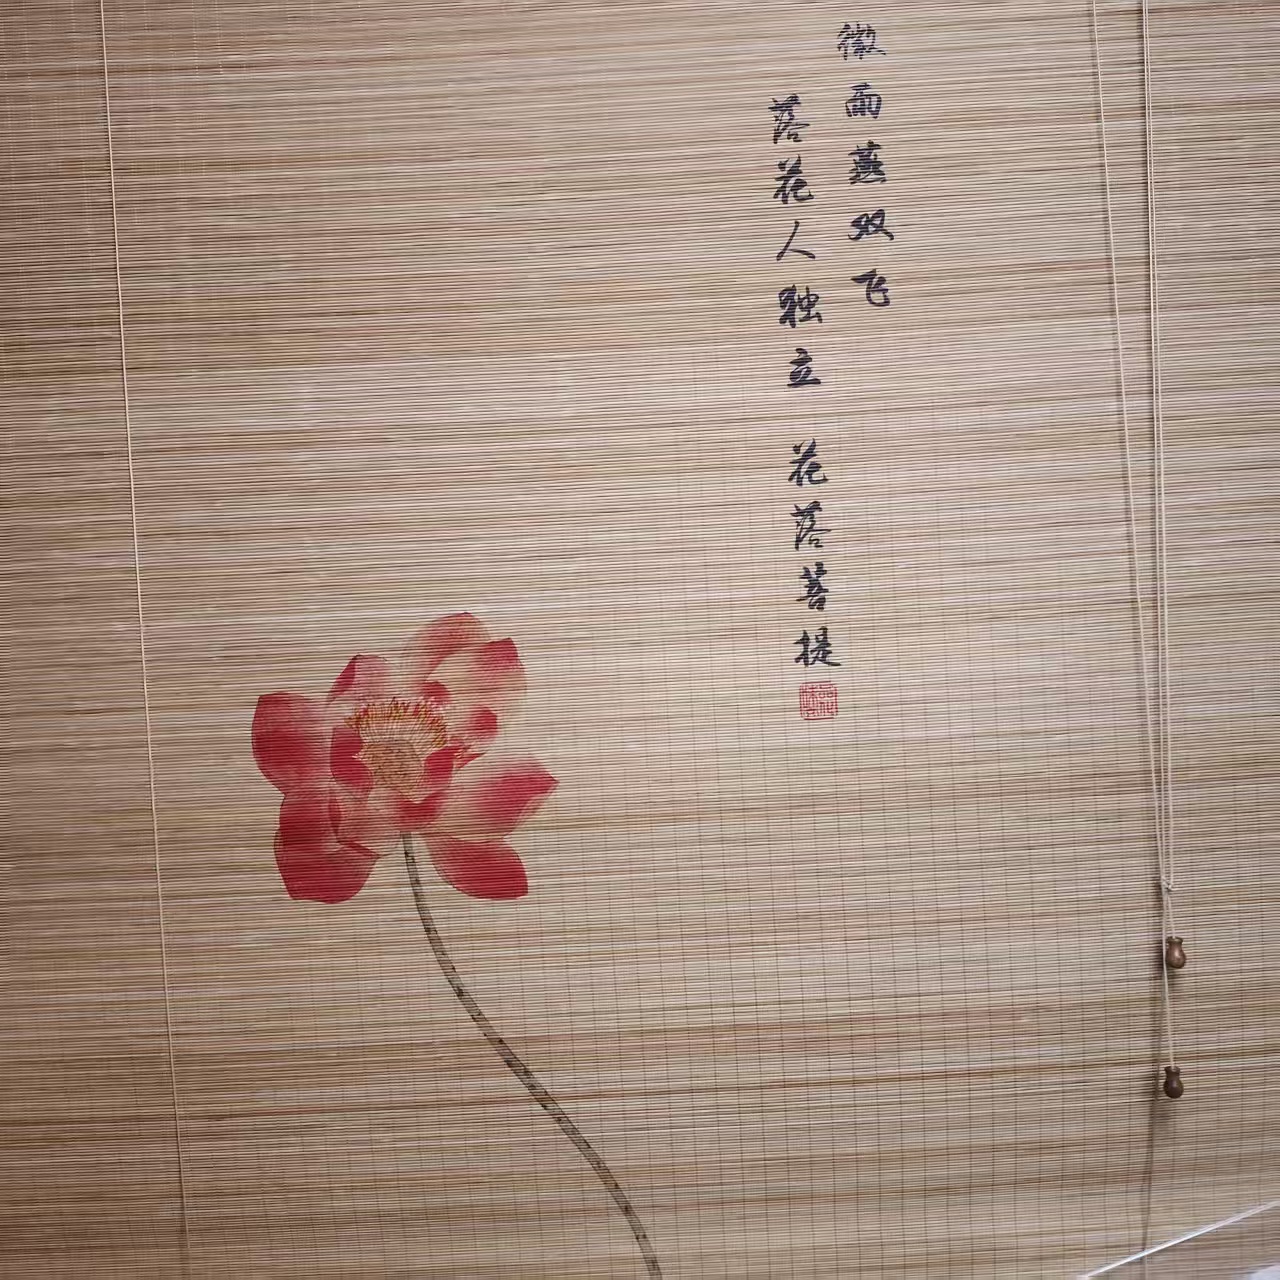 微雨燕双飞
落花人独立
花落菩提